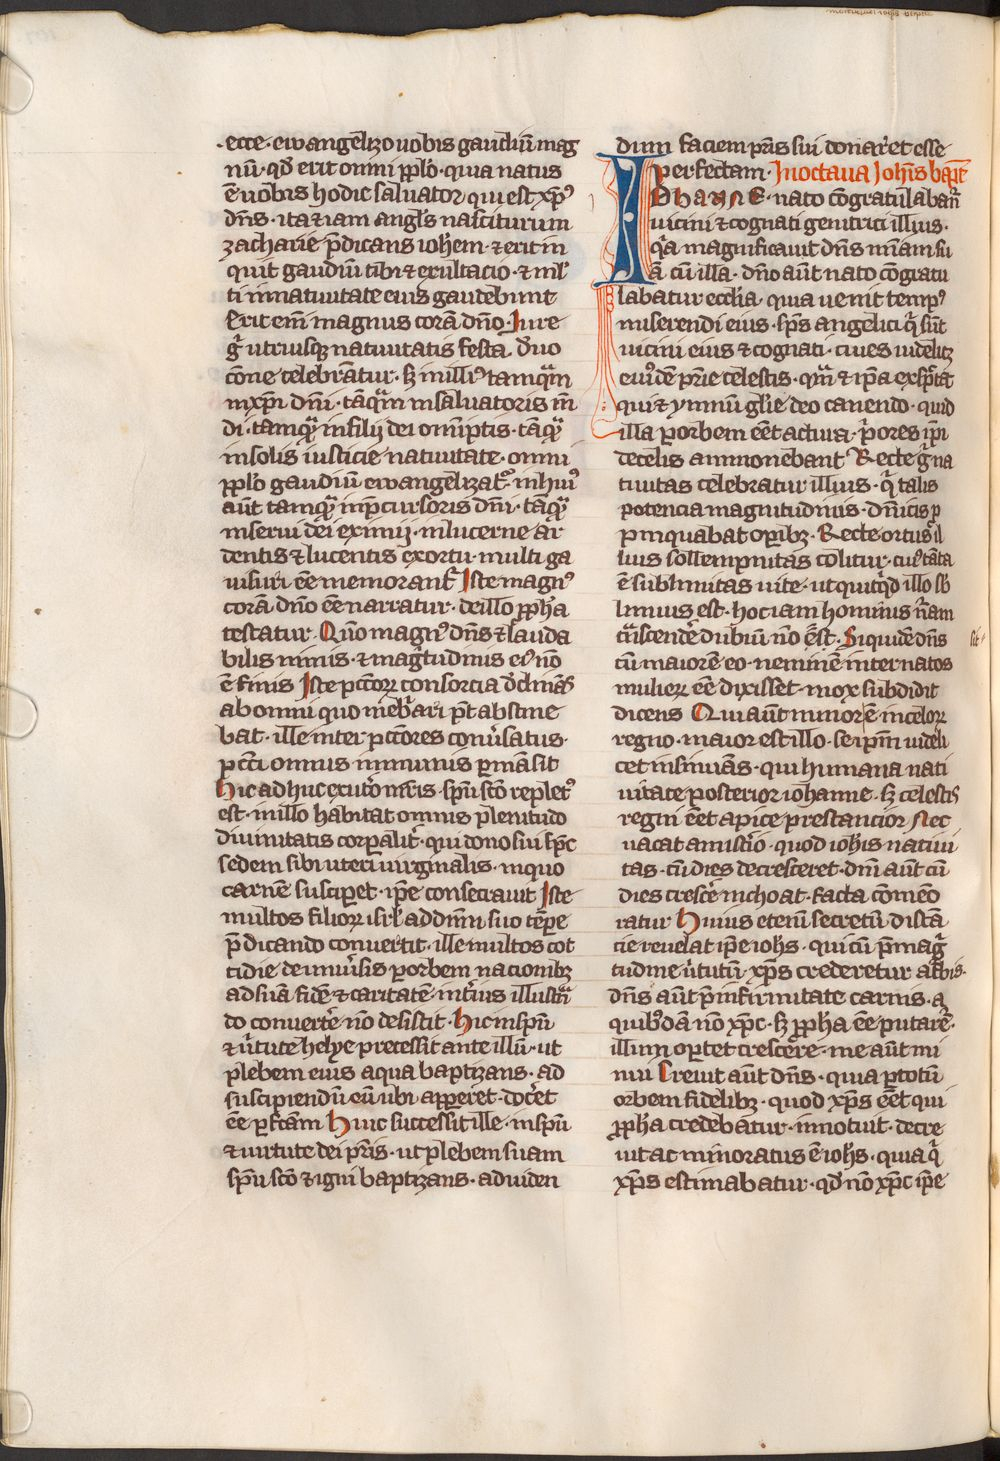 ecce · ewangelizo uobis gaudiū mag
nū · qđ erit omni ṗplo · quia natus
ē uobis hodie saluator · qui est xp̄ꝰ
dn̄s · ita etiam angl̄s nasciturum
zacharie p̄dicans ioh̄em · ⁊ erit in
quit gaudiū tibi ⁊ exultacio · ⁊ ml̓
ti in natiuitate eius gaudebunt
Erit em̄ magnus corā dn̄o Iure
g̊ utriusqꝫ natiuitatis festa deuo
cōne celebrantur · sꝫ in illiꝰ tamq̄m
in xp̄i dn̄i · tāq̄m in saluatoris mū
di · tamq̄ in filij dei om̄iptis · tāq̄
in solis iusticie natiuitate · omni
ṗplo gaudiū ewangelizat᷑ · in huiꝰ
aūt tamq̄ in p̄cursoris dn̄i · tāq̄
in serui dei eximij · in lucerne ar
dentis ⁊ lucentis exortu · multi ga
uisuri ēe memorant᷑ Iste magnꝰ
corā dn̄o ēe narratur · de illo ꝓph̄a
testatur · Qm̄ magnꝰ dn̄s ⁊ lauda
bilis nimis · ⁊ mag̅tudinis eiꝰ nō
ē finis Iste pctōrꝝ consorcia declinās
ab omni quo inebriari p̄t abstine
bat · ille inter pctōres conuersatus ·
pcti omnis inmunis ꝑmāsit
Hic adhuc ex utero mr̄is · spū scō repletꝰ
est · in illo habitat omnis plenitudo
diuinitatis corꝑalit̓ · qui dono sui sp̄c
sedem sibi uteri uirginalis · in quo
carnē susciꝑet · ip̄e consecrauit Iste
multos filiorꝝ isrl̓ ad dn̄m suo tēꝑe
p̄dicando conuertit · ille multos cot
tidie de uniuersis ꝑ orbem nacionibꝫ
ad suā fidē ⁊ caritatē · interius illustrā
do conuert̓e nō desistit · Hic in spū
⁊ u̓tute helye precessit ante illū · ut
plebem eius aqua baptizans · ad
suscipiendū eū ubi apꝑeret · doceret
ēe ꝑfc̄am Huic successit ille · in spū
⁊ uirtute dei pr̄is · ut plebem suam
spū scō ⁊ igni baptizans · ad uiden
dum faciem pr̄is sui donaret esse
perfectam · In octaua Ioh̄is bapt̄
IOHANNE · nato cōgratulabant᷑
uicini ⁊ cognati genitrici illius ·
q̄a magnificauit dn̄s mīam su
ā cū illa · dn̄o aūt nato cōgratu
labatur eccl̄ia · quia uenit tempꝰ
miserendi eius · spūs angelici q̄ sūt
uicini eius ⁊ cognati · ciues uidelicꝫ
eiusdē pr̄ie celestis
qui ⁊ ymnū gl̄ie deo canendo · quid
illa ꝑ orbem eēt actura · p̄ores ip̄i
de celis ammonebant Recte g̊ na
tiuitas celebratur illius · q̄ talis
potencia magnitudinis · dn̄icis ꝓ
pinquabat oꝑibꝫ · Recte ortus il
lius sollempnitas colitur · cuiꝰ tāta
ē sublimitas uite · ut quicq̓d illo sb̄
limius est · hoc iam hominis n̄am
trāscend̓e dubiū nō est · Siquidē dn̄s
cū maiorē eo · neminē inter natos
mulierꝝ ēe dixisset · mox subdidit
dicens Qui aūt minor ē · in celorꝝ
regno · maior est illo · se ip̄m uideli
cet insinuās · qui humana nati
uitate posterior iohanne · sꝫ celestis
regni eēt apice prestancior Nec
uacat a mist̓io · quod ioh̄is natiui
tas · cū dies decresceret · dn̄i aūt cū
dies cresc̓e inchoat · facta cōmēo
ratur Huius etenī secretū distā
cie reuelat ip̄e ioh̄s · qui cū p̄ mag̅
tudine u̓tutū · xp̄s crederetur a turbis ·
dn̄s aūt p̄ infirmitate carnis · a
quibꝰdā nō xp̄c · sꝫ ꝓph̄a ēe putaret᷑ ·
illum oꝑtet crescere · me aūt mi
nui Creuit aūt dn̄s · quia ꝑ totū
orbem fidelibꝫ · quod xp̄s eēt qui
ꝓph̄a credebatur · innotuit · decre
uit ac minoratus ē ioh̄s · quia q̄
xp̄s estimabatur · qđ nō xp̄c ip̄e